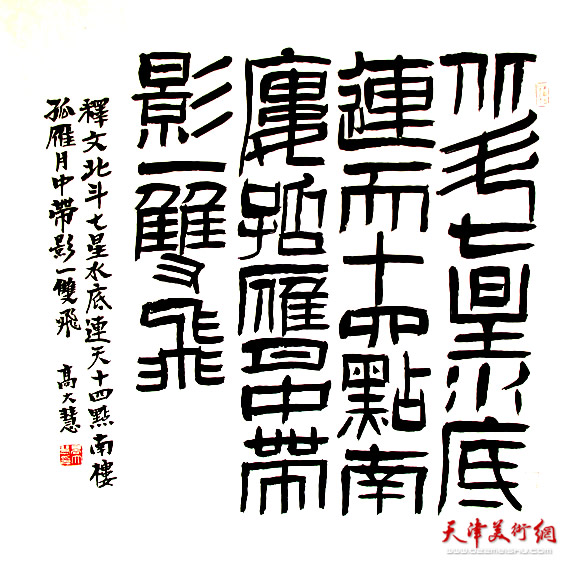 北斗七星水底
連天十四點南
廔孤雁月中帶
影一雙飛
釋文北斗七星水底連天十四點南樓
孤雁月中帶影一雙飛 高大慧
天津美術網